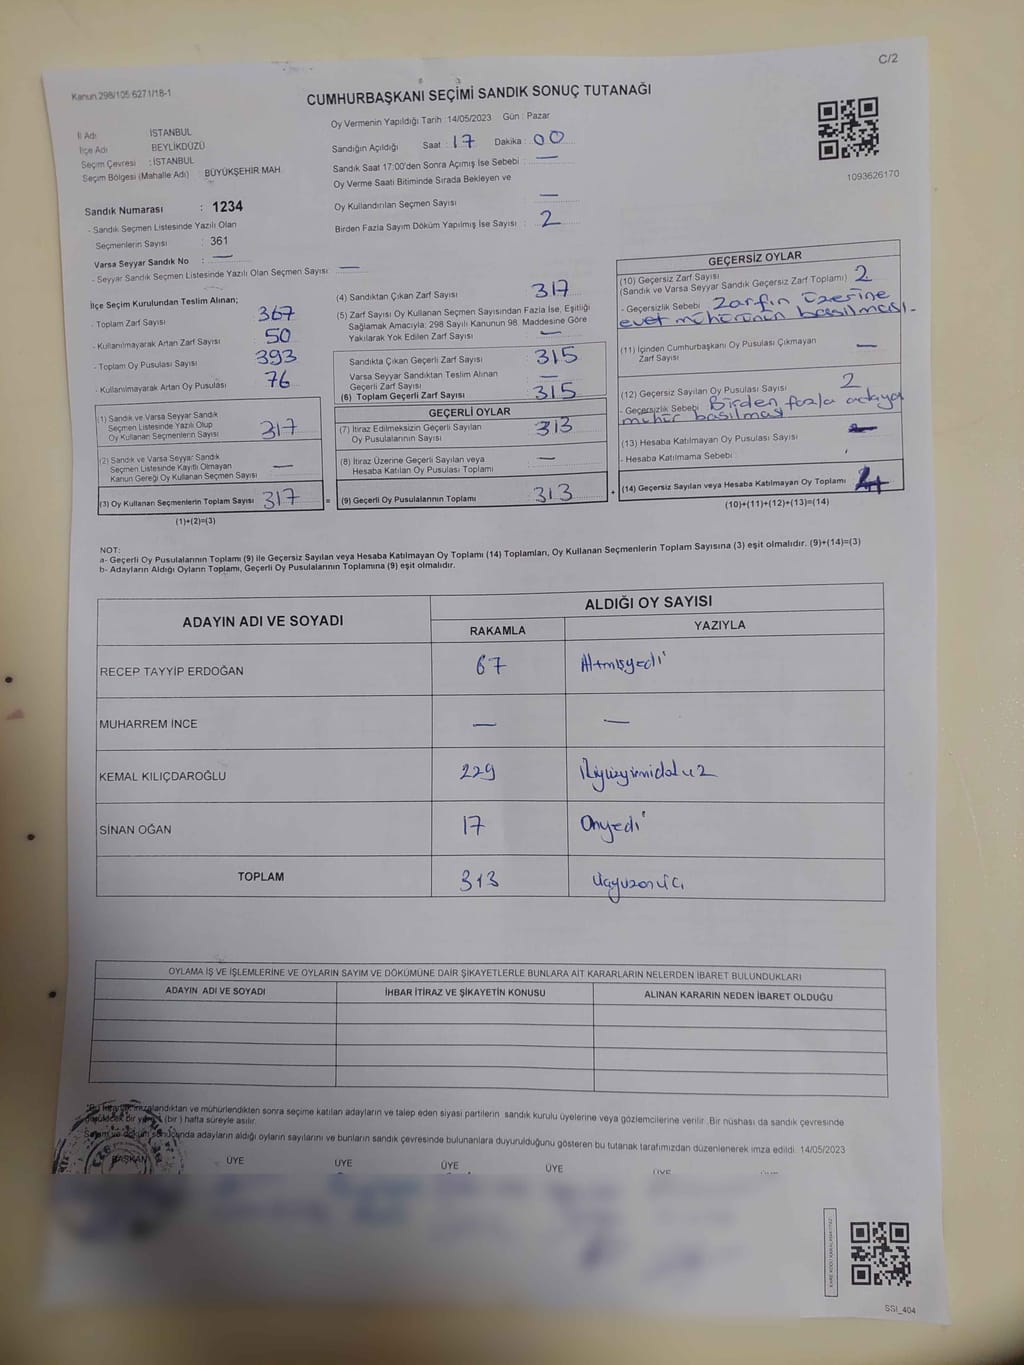 C/2
Kanun 298/105 6271/18-1
CUMHURBAŞKANI SEÇİMİ SANDIK SONUÇ TUTANAĞI
İl Adı İSTANBUL
İlçe Adı BEYLİKDÜZÜ
Seçim Çevresi : İSTANBUL
Seçim Bölgesi (Mahalle Adı) BÜYÜKŞEHİR MAH.
Sandık Numarası : 1234
- Sandık Seçmen Listesinde Yazılı Olan
Seçmenlerin Sayısı : 361
Varsa Seyyar Sandık No : —
- Seyyar Sandık Seçmen Listesinde Yazılı Olan Seçmen Sayısı : —
Oy Vermenin Yapıldığı Tarih : 14/05/2023 Gün : Pazar
Sandığın Açıldığı Saat : 17 Dakika : 00
Sandık Saat 17:00'den Sonra Açımış İse Sebebi : —
Oy Verme Saati Bitiminde Sırada Bekleyen ve
Oy Kullandırılan Seçmen Sayısı : —
Birden Fazla Sayım Döküm Yapılmış İse Sayısı : 2
1093626170
İlçe Seçim Kurulundan Teslim Alınan;
- Toplam Zarf Sayısı 367
- Kullanılmayarak Artan Zarf Sayısı 50
- Toplam Oy Pusulası Sayısı 393
- Kullanılmayarak Artan Oy Pusulası 76
(1) Sandık ve Varsa Seyyar Sandık
Seçmen Listesinde Yazılı Olup
Oy Kullanan Seçmenlerin Sayısı 317
(2) Sandık ve Varsa Seyyar Sandık
Seçmen Listesinde Kayıtlı Olmayan
Kanun Gereği Oy Kullanan Seçmen Sayısı —
(3) Oy Kullanan Seçmenlerin Toplam Sayısı 317 =
(1)+(2)=(3)
(4) Sandıktan Çıkan Zarf Sayısı 317
(5) Zarf Sayısı Oy Kullanan Seçmen Sayısından Fazla İse, Eşitliği
Sağlamak Amacıyla; 298 Sayılı Kanunun 98. Maddesine Göre
Yakılarak Yok Edilen Zarf Sayısı —
Sandıkta Çıkan Geçerli Zarf Sayısı 315
Varsa Seyyar Sandıktan Teslim Alınan
Geçerli Zarf Sayısı —
(6) Toplam Geçerli Zarf Sayısı 315
GEÇERLİ OYLAR
(7) İtiraz Edilmeksizin Geçerli Sayılan
Oy Pusulasının Sayısı 313
(8) İtiraz Üzerine Geçerli Sayılan veya
Hesaba Katılan Oy Pusulası Toplamı —
(9) Geçerli Oy Pusulalarının Toplamı 313 +
GEÇERSİZ OYLAR
(10) Geçersiz Zarf Sayısı
(Sandık ve Varsa Seyyar Sandık Geçersiz Zarf Toplamı) 2
- Geçersizlik Sebebi : Zarfın üzerine
evet mührünün basılması.
(11) İçinden Cumhurbaşkanı Oy Pusulası Çıkmayan
Zarf Sayısı —
(12) Geçersiz Sayılan Oy Pusulası Sayısı 2
- Geçersizlik Sebebi Birden fazla adaya
mühür basılması
(13) Hesaba Katılmayan Oy Pusulası Sayısı —
- Hesaba Katılmama Sebebi :
(14) Geçersiz Sayılan veya Hesaba Katılmayan Oy Toplamı 4
(10)+(11)+(12)+(13)=(14)
NOT:
a- Geçerli Oy Pusulalarının Toplamı (9) ile Geçersiz Sayılan veya Hesaba Katılmayan Oy Toplamı (14) Toplamları, Oy Kullanan Seçmenlerin Toplam Sayısına (3) eşit olmalıdır. (9)+(14)=(3)
b- Adayların Aldığı Oyların Toplamı, Geçerli Oy Pusulalarının Toplamına (9) eşit olmalıdır.
ADAYIN ADI VE SOYADI ALDIĞI OY SAYISI
RAKAMLA YAZIYLA
RECEP TAYYİP ERDOĞAN 67 Altmışyedi
MUHARREM İNCE — —
KEMAL KILIÇDAROĞLU 229 İkiyüzyirmidokuz
SİNAN OĞAN 17 Onyedi
TOPLAM 313 üçyüzonüç
OYLAMA İŞ VE İŞLEMLERİNE VE OYLARIN SAYIM VE DÖKÜMÜNE DAİR ŞİKAYETLERLE BUNLARA AİT KARARLARIN NELERDEN İBARET BULUNDUKLARI
ADAYIN ADI VE SOYADI İHBAR İTİRAZ VE ŞİKAYETİN KONUSU ALINAN KARARIN NEDEN İBARET OLDUĞU
imzalandıktan ve mühürlendikten sonra seçime katılan adayların ve talep eden siyasi partilerin sandık kurulu üyelerine veya gözlemcilerine verilir. Bir nüshası da sandık çevresinde
bir yere 1 (bir) hafta süreyle asılır.
Sayım ve döküm sonucunda adayların aldığı oyların sayılarını ve bunların sandık çevresinde bulunanlara duyurulduğunu gösteren bu tutanak tarafımızdan düzenlenerek imza edildi. 14/05/2023
BAŞKAN ÜYE ÜYE ÜYE ÜYE ÜYE
SSI_404